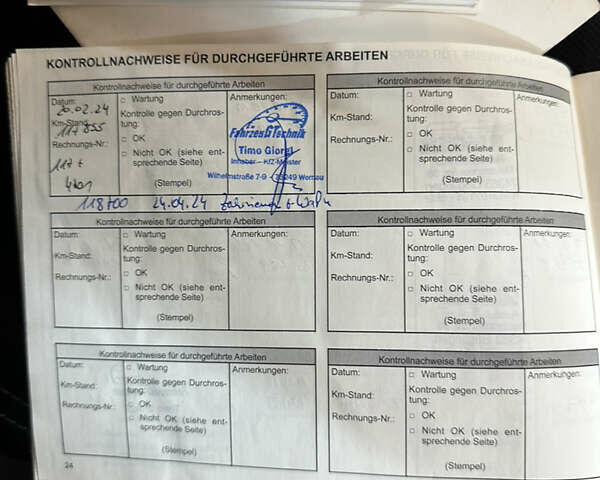 KONTROLLNACHWEISE FÜR DURCHGEFÜHRTE ARBEITEN
Kontrollnachweise für durchgeführte Arbeiten
Datum:
20.02.24
Km-Stand:
117 855
Rechnungs-Nr.:
□ Wartung
Kontrolle gegen Durchros-
tung:
□ OK
□ Nicht OK (siehe ent-
sprechende Seite)
(Stempel)
Anmerkungen:
Fahrzeug Technik
Timo Giorgi
Inhaber – KfZ-Meister
Wilhelmstraße 7-9
Wernau
118700 24.04.24
Kontrollnachweise für durchgeführte Arbeiten
Datum:
Km-Stand:
Rechnungs-Nr.:
□ Wartung
Kontrolle gegen Durchros-
tung:
□ OK
□ Nicht OK (siehe ent-
sprechende Seite)
(Stempel)
Anmerkungen:
Kontrollnachweise für durchgeführte Arbeiten
Datum:
Km-Stand:
Rechnungs-Nr.:
□ Wartung
Kontrolle gegen Durchros-
tung:
□ OK
□ Nicht OK (siehe ent-
sprechende Seite)
(Stempel)
Anmerkungen:
Kontrollnachweise für durchgeführte Arbeiten
Datum:
Km-Stand:
Rechnungs-Nr.:
□ Wartung
Kontrolle gegen Durchros-
tung:
□ OK
□ Nicht OK (siehe ent-
sprechende Seite)
(Stempel)
Anmerkungen:
Kontrollnachweise für durchgeführte Arbeiten
Datum:
Km-Stand:
Rechnungs-Nr.:
□ Wartung
Kontrolle gegen Durchros-
tung:
□ OK
□ Nicht OK (siehe ent-
sprechende Seite)
(Stempel)
Anmerkungen:
Kontrollnachweise für durchgeführte Arbeiten
Datum:
Km-Stand:
Rechnungs-Nr.:
□ Wartung
Kontrolle gegen Durchros-
tung:
□ OK
□ Nicht OK (siehe ent-
sprechende Seite)
(Stempel)
Anmerkungen:
24